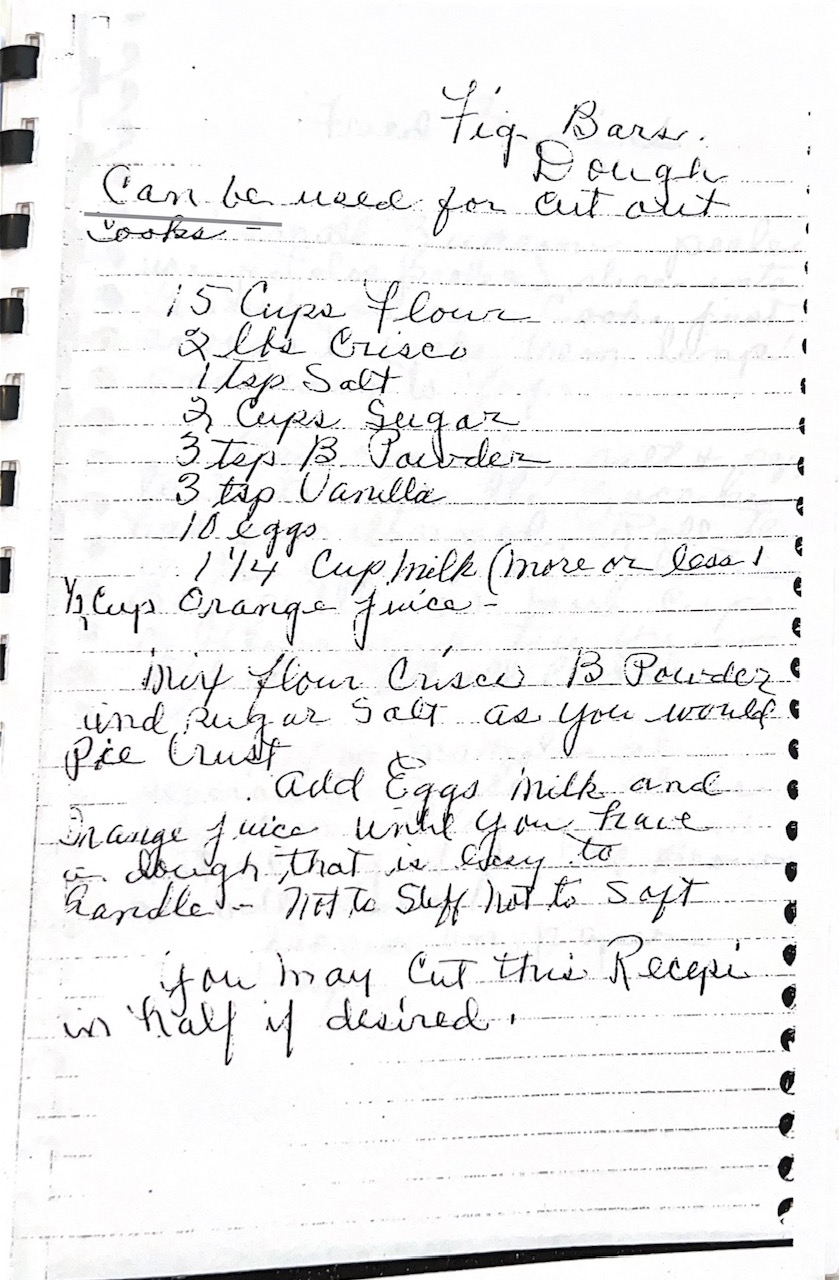 Fig Bars.
Dough
Can be used for cut out
Cooks -
15 Cups flour
2 lbs Crisco
1 tsp Salt
2 Cups Sugar
3 tsp B Powder
3 tsp Vanilla
10 eggs
1 1/4 Cup Milk (more or less)
1/2 Cup Orange juice -
Mix flour Crisco B Powder
and sugar Salt as you would
Pie Crust
. Add Eggs Milk and
Orange juice until you have
a dough that is easy to
handle - Not to Stiff Not to Soft
You may Cut this Recepi
in half if desired.